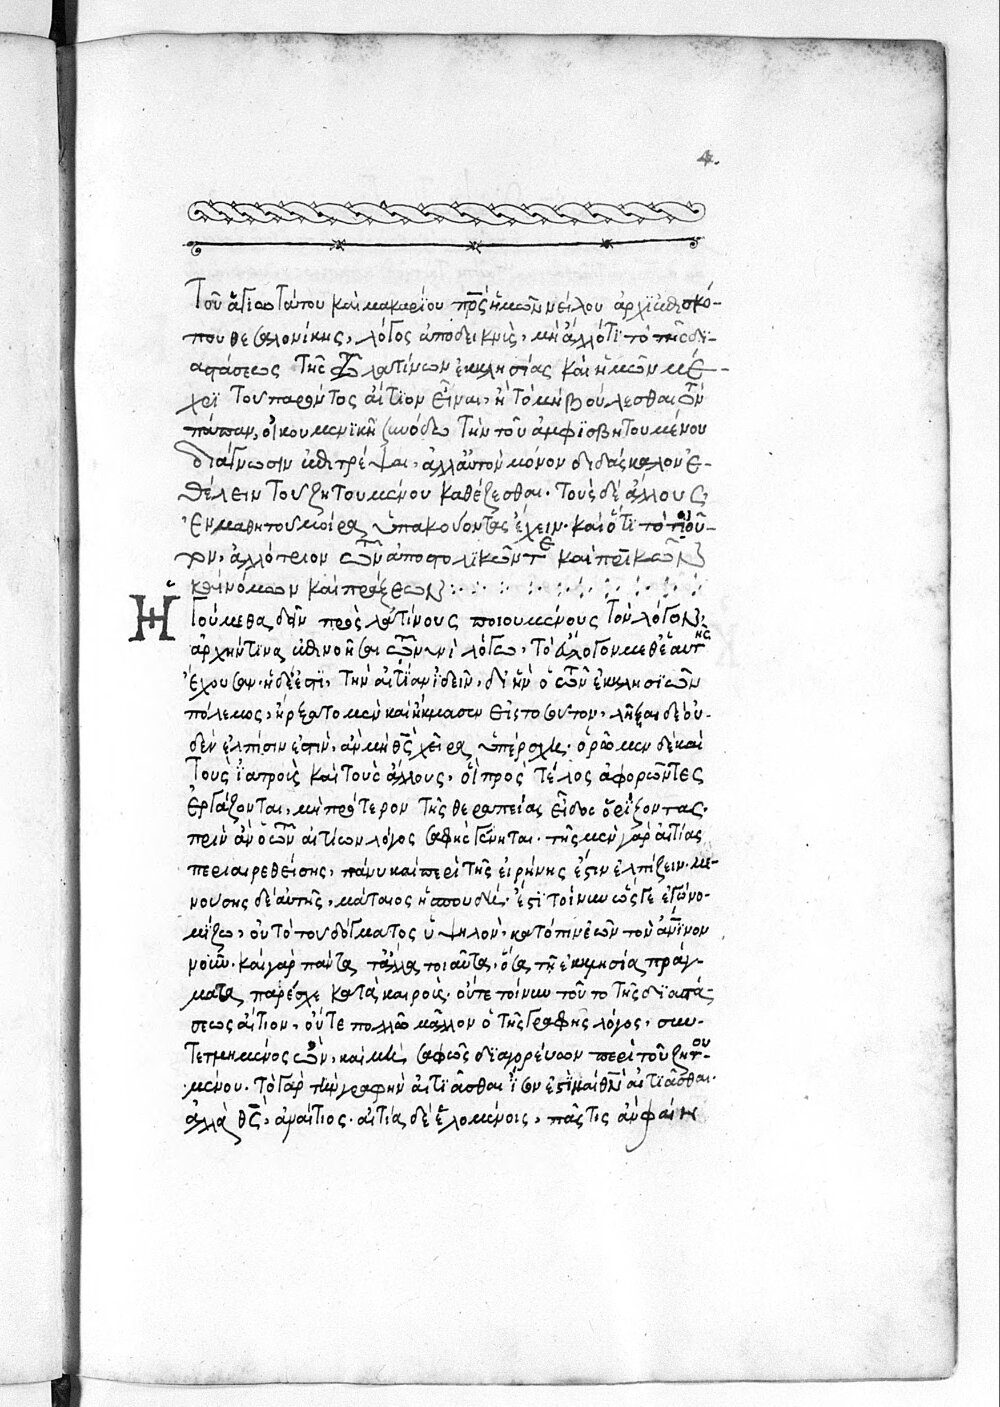 4.
Τοῦ ἁγιωτάτου καὶ μακαρίου πρς ἡμῶν νείλου ἀρχιεπισκό-
που θεσαλονίκης, λόγος ἀποδεικνὺς, μὴ ἄλλό τι τὸ τῆς δι-
αστάσεως τῆς τῶν λατίνων ἐκκλησίας καὶ ἡμῶν μέ-
χρι τοῦ παρόντος αἴτϊον εἶναι, ἢ τὸ μὴ βούλεσθαι τὸν
πάπαν, οἰκουμενϊκῆ συνόδω τὴν τοῦ ἀμφισβητουμένου
διάγνωσιν ἐπιτρέψαι, ἀλλ' αὐτὸν μόνον διδάσκαλον ἐ-
θέλειν τοῦ ζητουμένου καθέζεσθαι. τοὺς δὲ ἄλλους
ἐν μαθητοῦ μοίρα ὑπακούοντας ἔχειν. καὶ ὅτι τὸ τοιοῦ-
τον, ἀλλότριον τῶν ἀποστολϊκῶν τε καὶ πρικῶν
κανόνων καὶ πράξεων
Ἡγούμεθα δεῖν πρὸς λατίνους ποιουμένους τὸν λόγον,
ἀρχήν τινα ἐπινοῆσαι τῶ λόγω, τὸ ἀνάλογον μεθ' ἑαυτῆς
ἔχουσαν. ἡ δέ ἐστι, τὴν αἰτίαν ἰδεῖν, δι' ἣν ὁ τῶν ἐκκλησϊῶν
πόλεμος, ἤρξατο μὲν καὶ ἤκμασεν εἰς τοσοῦτον, λῆξαι δὲ οὐ-
δὲν ἐλπίσιν ἐστὶν, ἂν μὴ θς χεῖρα ὑπέρσχη. ὁρῶμεν δὲ καὶ
τοὺς ἰατροὺς καὶ τοὺς ἄλλους, οἳ πρὸς τέλος ἀφορῶντες
ἐργάζονται, μὴ πρότερον τῆς θεραπείας εἶδος ὁρίζοντας.
πρὶν ἂν ὁ τῶν αἰτίων λόγος σαφὴς γένηται. τῆς μὲν γὰρ αἰτίας
περιαιρεθείσης, πάνυ καὶ περὶ τῆς εἰρήνης ἔστιν ἐλπίζειν. με-
νούσης δὲ αὐτῆς, μάταιος ἡ σπουδή. ἔστι τοίνυν ὥς γε ἐγὼ νο-
μίζω, οὐ τὸ τοῦ δόγματος ὑψηλὸν, κατόπιν ἐῶν τὸν ἀνϊνον
νοῦν. καὶ γὰρ πάντα τἄλλα τοιαῦτα, ὅσα τῆ ἐκκλησία πράγ-
ματα παρέσχε κατὰ καιροὺς. οὔτε τοίνυν τοῦτο τῆς διαστά-
σεως αἴτιον, οὔτε πολλῶ μᾶλλον ὁ τῆς γραφῆς λόγος, συν-
τετμημένος ὢν, καὶ μὴ σαφῶς διαγορεύων περὶ τοῦ ζητου-
μένου. τὸ γὰρ τὴν γραφὴν αἰτιᾶσθαι ἴσον ἐστὶ καὶ θν αἰτιᾶσθαι.
ἀλλὰ θς, ἀναίτιος. αἰτία δὲ ἑλομένοις, πᾶς τις ἂν φαίη